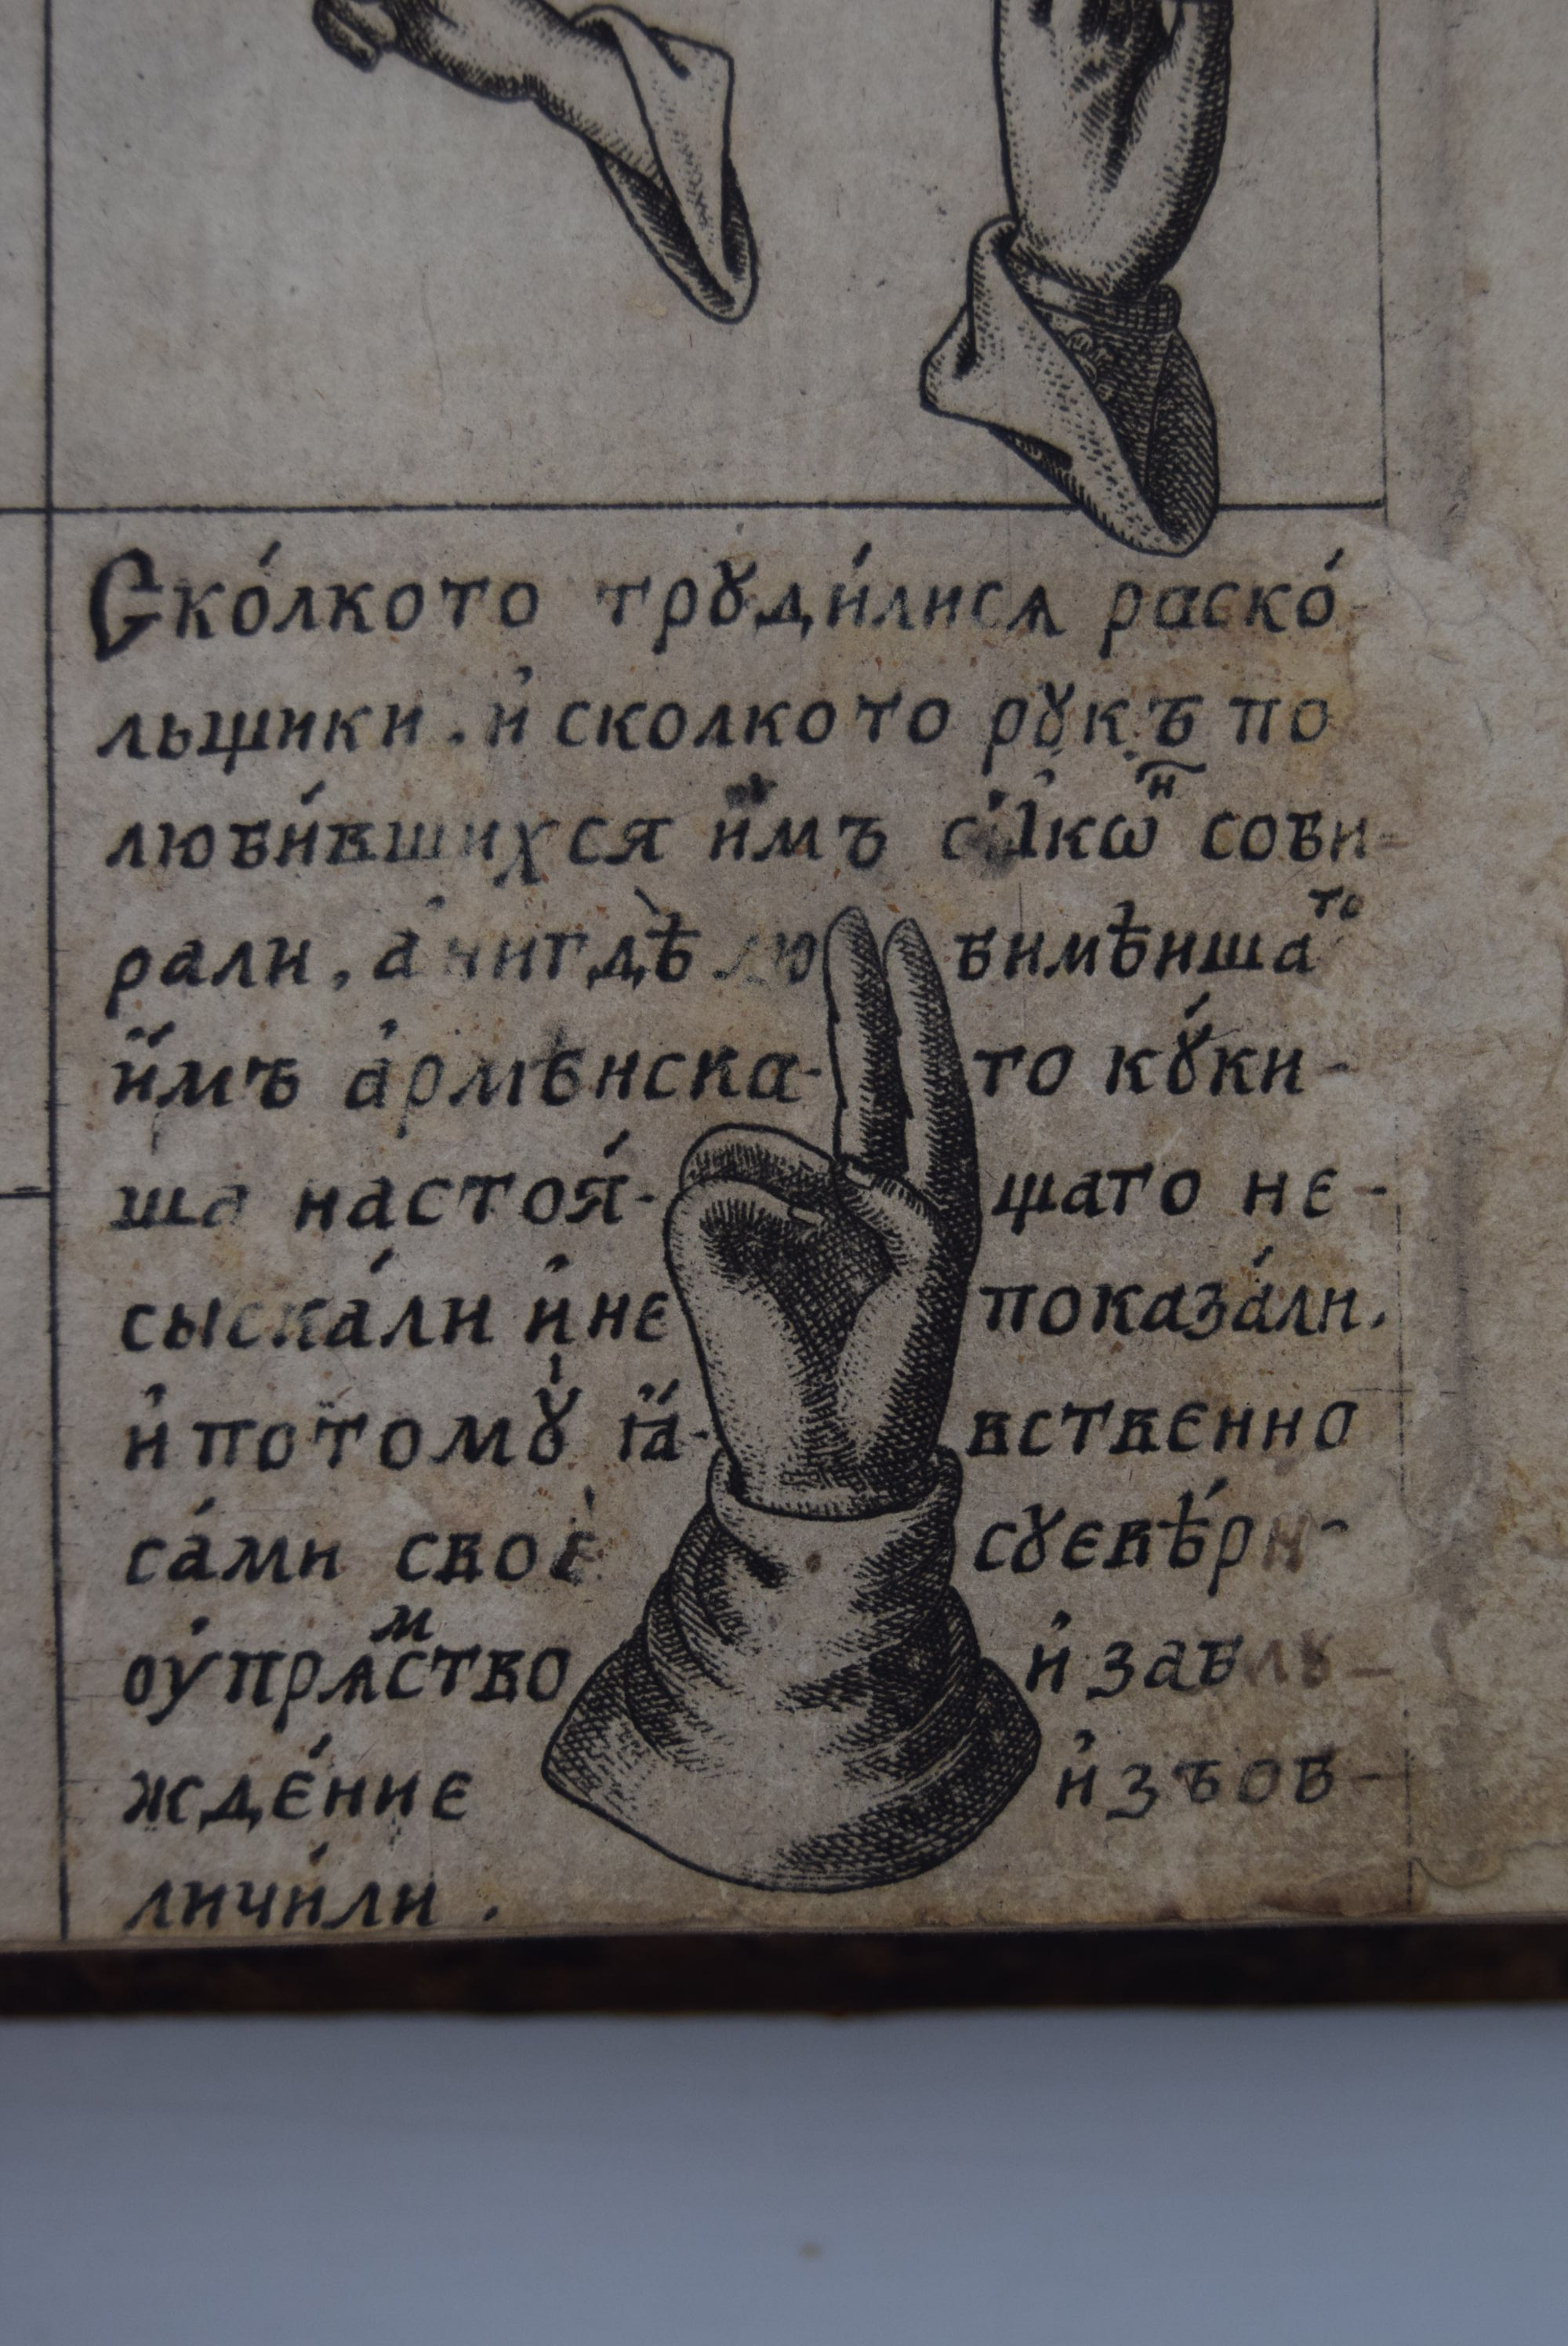 Ско́лкото трꙋди́лисѧ раско́-
льщики. и҆ сколкото рꙋкъ по
люби́вшихся и҆́мъ с і҆кѡ́н соби-
рали, а҆ нигдѣ̀ лю бимѣишаго
и҆́мъ а҆рмѣнска- го кꙋ́ки-
ша настоя́- щаго не-
сыска́ли и҆ не показа́ли.
и҆ потомꙋ ꙗ҆́- вственно
са́ми своѐ сꙋевѣ́рн-
оу҆прѧмство и҆ заблꙋ-
жде́ние и҆зъоб-
личи́ли.